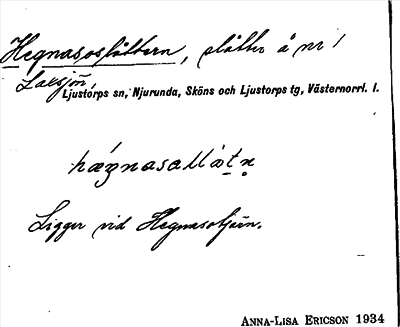 Hegnasoslåttern, slåtter å nr 1
Laxsjön,
Ljustorps sn, Njurunda, Sköns och Ljustorps tg, Västernorrl. l.
Ligger vid Hegnasotjärn.
ANNA-LISA ERICSON 1934